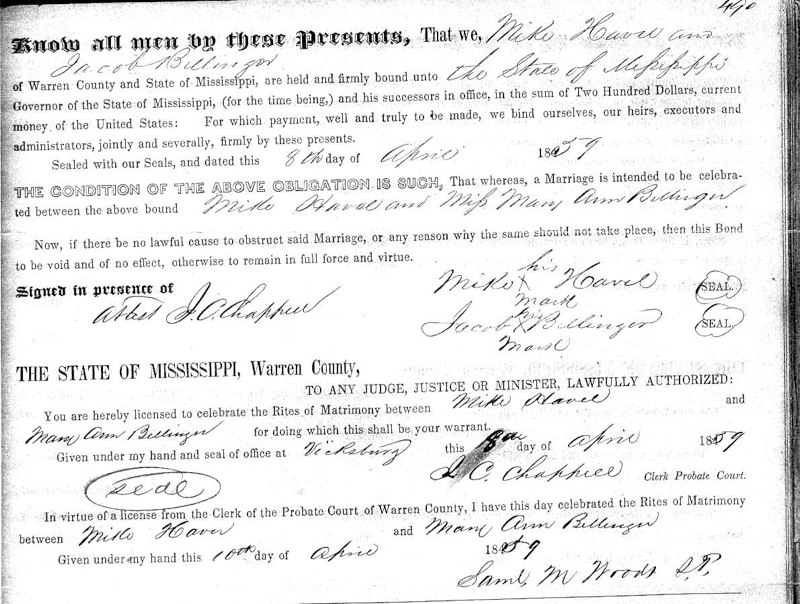 490
Know all men by these Presents, That we, Mike Havel and
Jacob Bellinger
of Warren County and State of Mississippi, are held and firmly bound unto the State of Mississippi
Governor of the State of Mississippi, (for the time being,) and his successors in office, in the sum of Two Hundred Dollars, current
money of the United States: For which payment, well and truly to be made, we bind ourselves, our heirs, executors and
administrators, jointly and severally, firmly by these presents.
Sealed with our Seals, and dated this 8th day of April 1859
THE CONDITION OF THE ABOVE OBLIGATION IS SUCH, That whereas, a Marriage is intended to be celebra-
ted between the above bound Mike Havel and Miss Mary Ann Bellinger
Now, if there be no lawful cause to obstruct said Marriage, or any reason why the same should not take place, then this Bond
to be void and of no effect, otherwise to remain in full force and virtue.
Signed in presence of
Attest J. C. Chappell
his
Mike X Havel SEAL.
Mark
his
Jacob X Bellinger SEAL.
Mark
THE STATE OF MISSISSIPPI, Warren County,
TO ANY JUDGE, JUSTICE OR MINISTER, LAWFULLY AUTHORIZED:
You are hereby licensed to celebrate the Rites of Matrimony between Mike Havel and
Mary Ann Bellinger for doing which this shall be your warrant.
Given under my hand and seal of office at Vicksburg this 8th day of April 1859
J. C. Chappell Clerk Probate Court.
Seal
In virtue of a license from the Clerk of the Probate Court of Warren County, I have this day celebrated the Rites of Matrimony
between Mike Havel and Mary Ann Bellinger
Given under my hand this 10th day of April 1859
Saml. M Woods J.P.